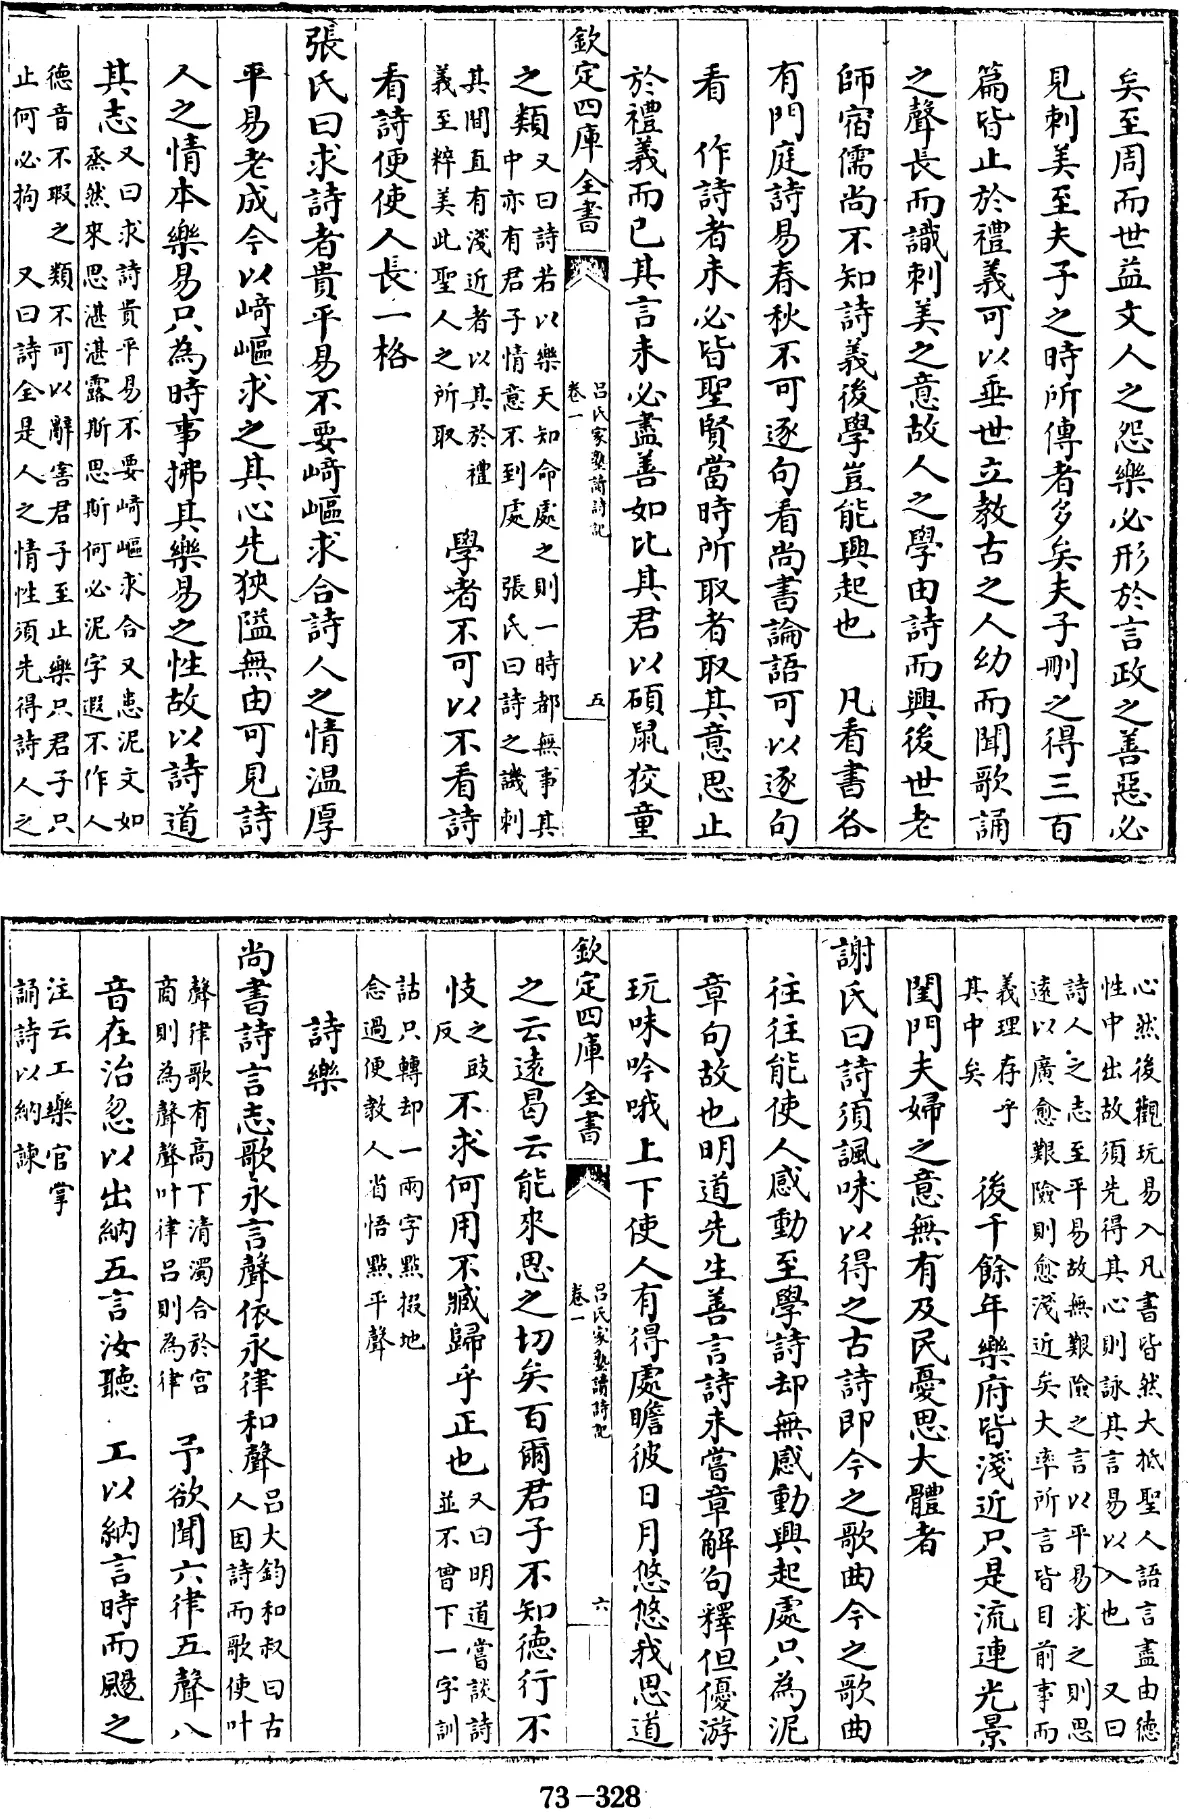 矣至周而世益文人之怨樂必形於言政之善惡必
見刺美至夫子之時所傳者多矣夫子刪之得三百
篇皆止於禮義可以垂世立教古之人幼而聞歌誦
之聲長而識刺美之意故人之學由詩而興後世老
師宿儒尚不知詩義後學豈能興起也 凡看書各
有門庭詩易春秋不可逐句看尚書論語可以逐句
看 作詩者未必皆聖賢當時所取者取其意思止
於禮義而已其言未必盡善如比其君以碩鼠狡童
欽定四庫全書
呂氏家塾讀詩記
卷一
五
之類
又曰詩若以樂天知命處之則一時都無事其
中亦有君子情意不到處 張氏曰詩之譏刺
其間直有淺近者以其於禮
義至粹美此聖人之所取
學者不可以不看詩
看詩便使人長一格
張氏曰求詩者貴平易不要﨑嶇求合詩人之情温厚
平易老成今以﨑嶇求之其心先狹隘無由可見詩
人之情本樂易只為時事拂其樂易之性故以詩道
其志
又曰求詩貴平易不要﨑嶇求合又患泥文如
烝然來思湛湛露斯思斯何必泥字遐不作人
德音不瑕之類不可以辭害君子至止樂只君子只
止何必拘 又曰詩全是人之情性須先得詩人之
心然後觀玩易入凡書皆然大抵聖人語言盡由徳
性中出故須先得其心則詠其言易以入也 又曰
詩人之志至平易故無艱險之言以平易求之則思
遠以廣愈艱險則愈淺近矣大率所言皆目前事而
義理存乎
其中矣
後千餘年樂府皆淺近只是流連光景
閨門夫婦之意無有及民憂思大體者
謝氏曰詩須諷味以得之古詩即今之歌曲今之歌曲
往往能使人感動至學詩却無感動興起處只為泥
章句故也明道先生善言詩未嘗章解句釋但優游
玩味吟哦上下使人有得處瞻彼日月悠悠我思道
欽定四庫全書
呂氏家塾讀詩記
卷一
六
之云遠曷云能來思之切矣百爾君子不知徳行不
忮
之豉
反
不求何用不臧歸乎正也
又曰明道嘗談詩
並不曾下一字訓
詁只轉却一兩字點掇地
念過便教人省悟點平聲
詩樂
尚書詩言志歌永言聲依永律和聲
呂大鈞和叔曰古
人因詩而歌使叶
聲律歌有高下清濁合於宫
商則為聲聲叶律呂則為律
予欲聞六律五聲八
音在治忽以出納五言汝聽 工以納言時而颺之
注云工樂官掌
誦詩以納諫
73-328